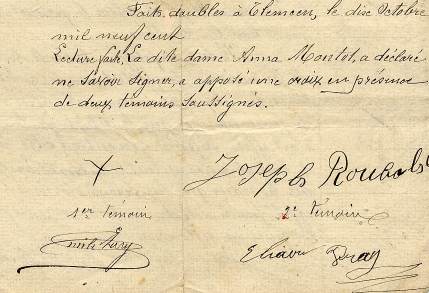 Faits doubles à Tlemcen, le dix Octobre
mil neuf cent
Lecture faite, La dite dame Anna Montot, a déclaré
ne savoir signer, a apposé une croix en présence
de deux témoins soussignés.
X
Joseph
1er témoin
2e témoin